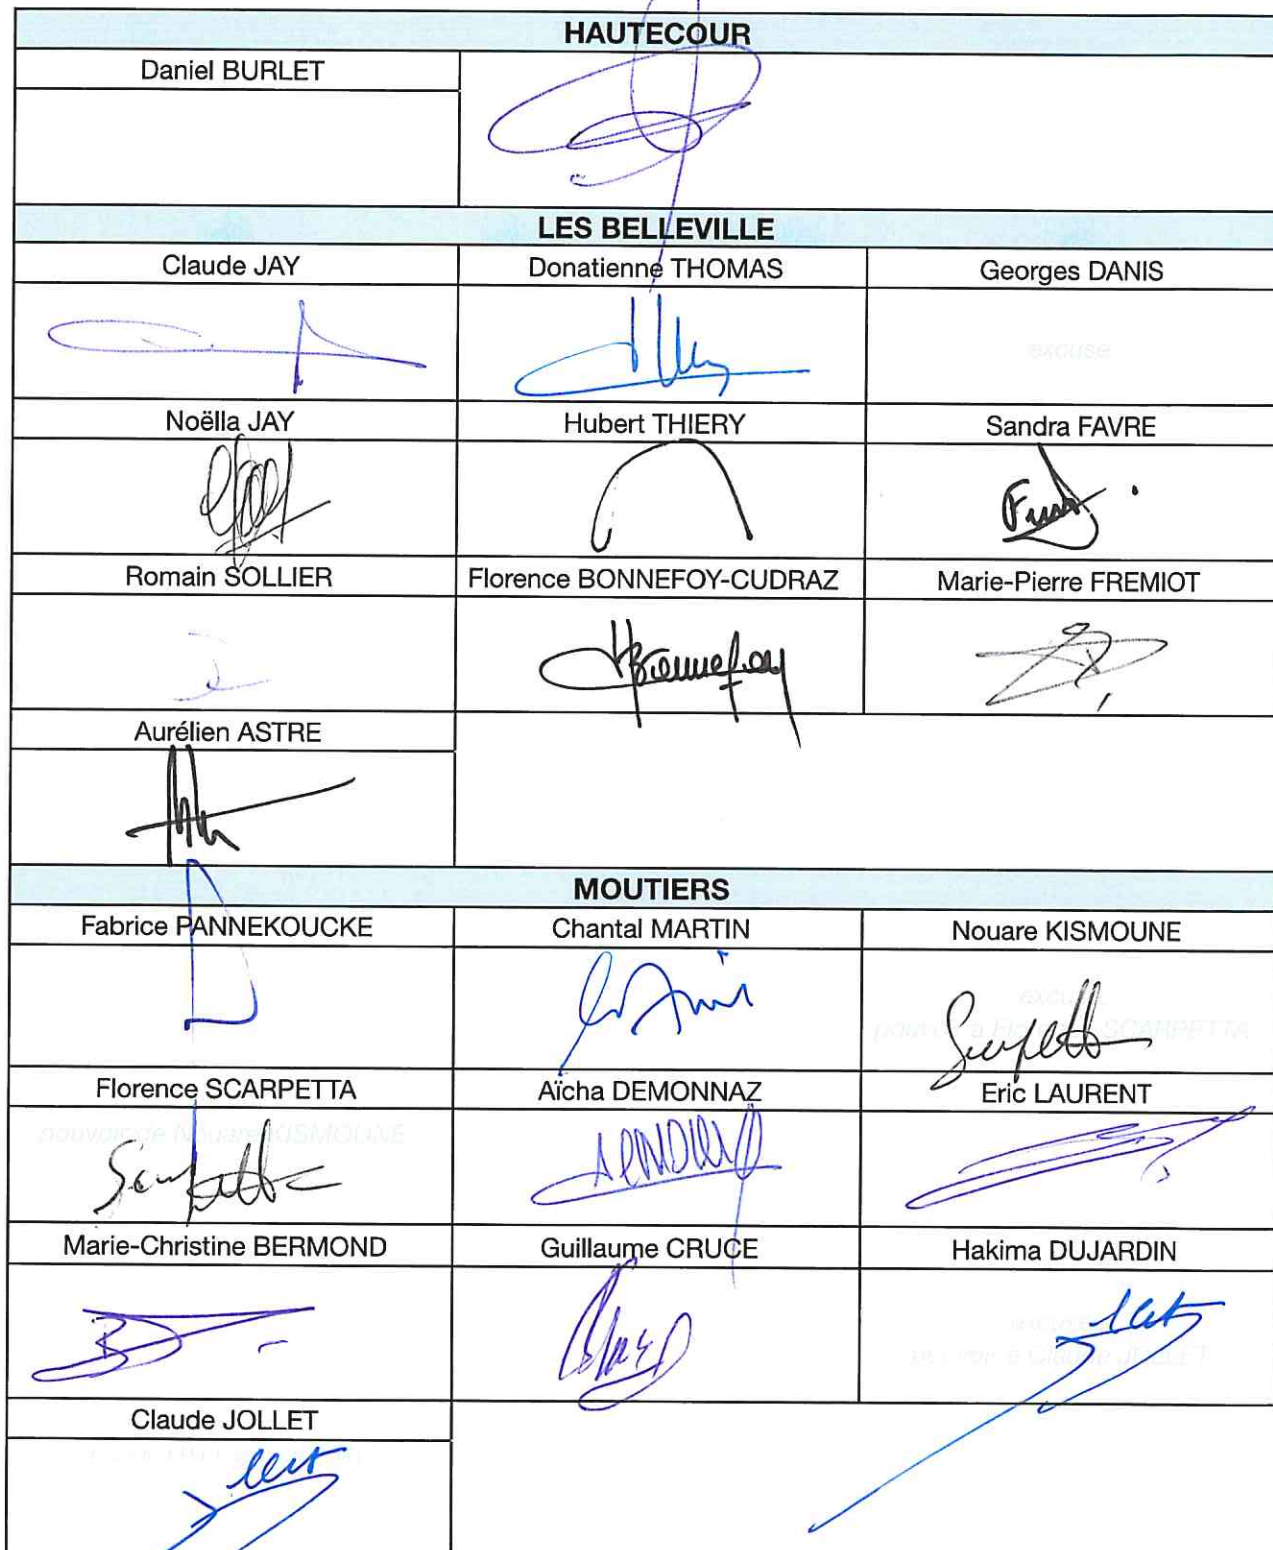 HAUTECOUR
Daniel BURLET
LES BELLEVILLE
Claude JAY Donatienne THOMAS Georges DANIS
excusé
Noëlla JAY Hubert THIERY Sandra FAVRE
Romain SOLLIER Florence BONNEFOY-CUDRAZ Marie-Pierre FREMIOT
Bonnefoy
Aurélien ASTRE
MOUTIERS
Fabrice PANNEKOUCKE Chantal MARTIN Nouare KISMOUNE
excusé
pouvoir à Florence SCARPETTA
Scarpetta
Florence SCARPETTA Aïcha DEMONNAZ Eric LAURENT
pouvoir de Nouare KISMOUNE
Scarpetta
Marie-Christine BERMOND Guillaume CRUCE Hakima DUJARDIN
pouvoir à Claude JOLLET
Claude JOLLET